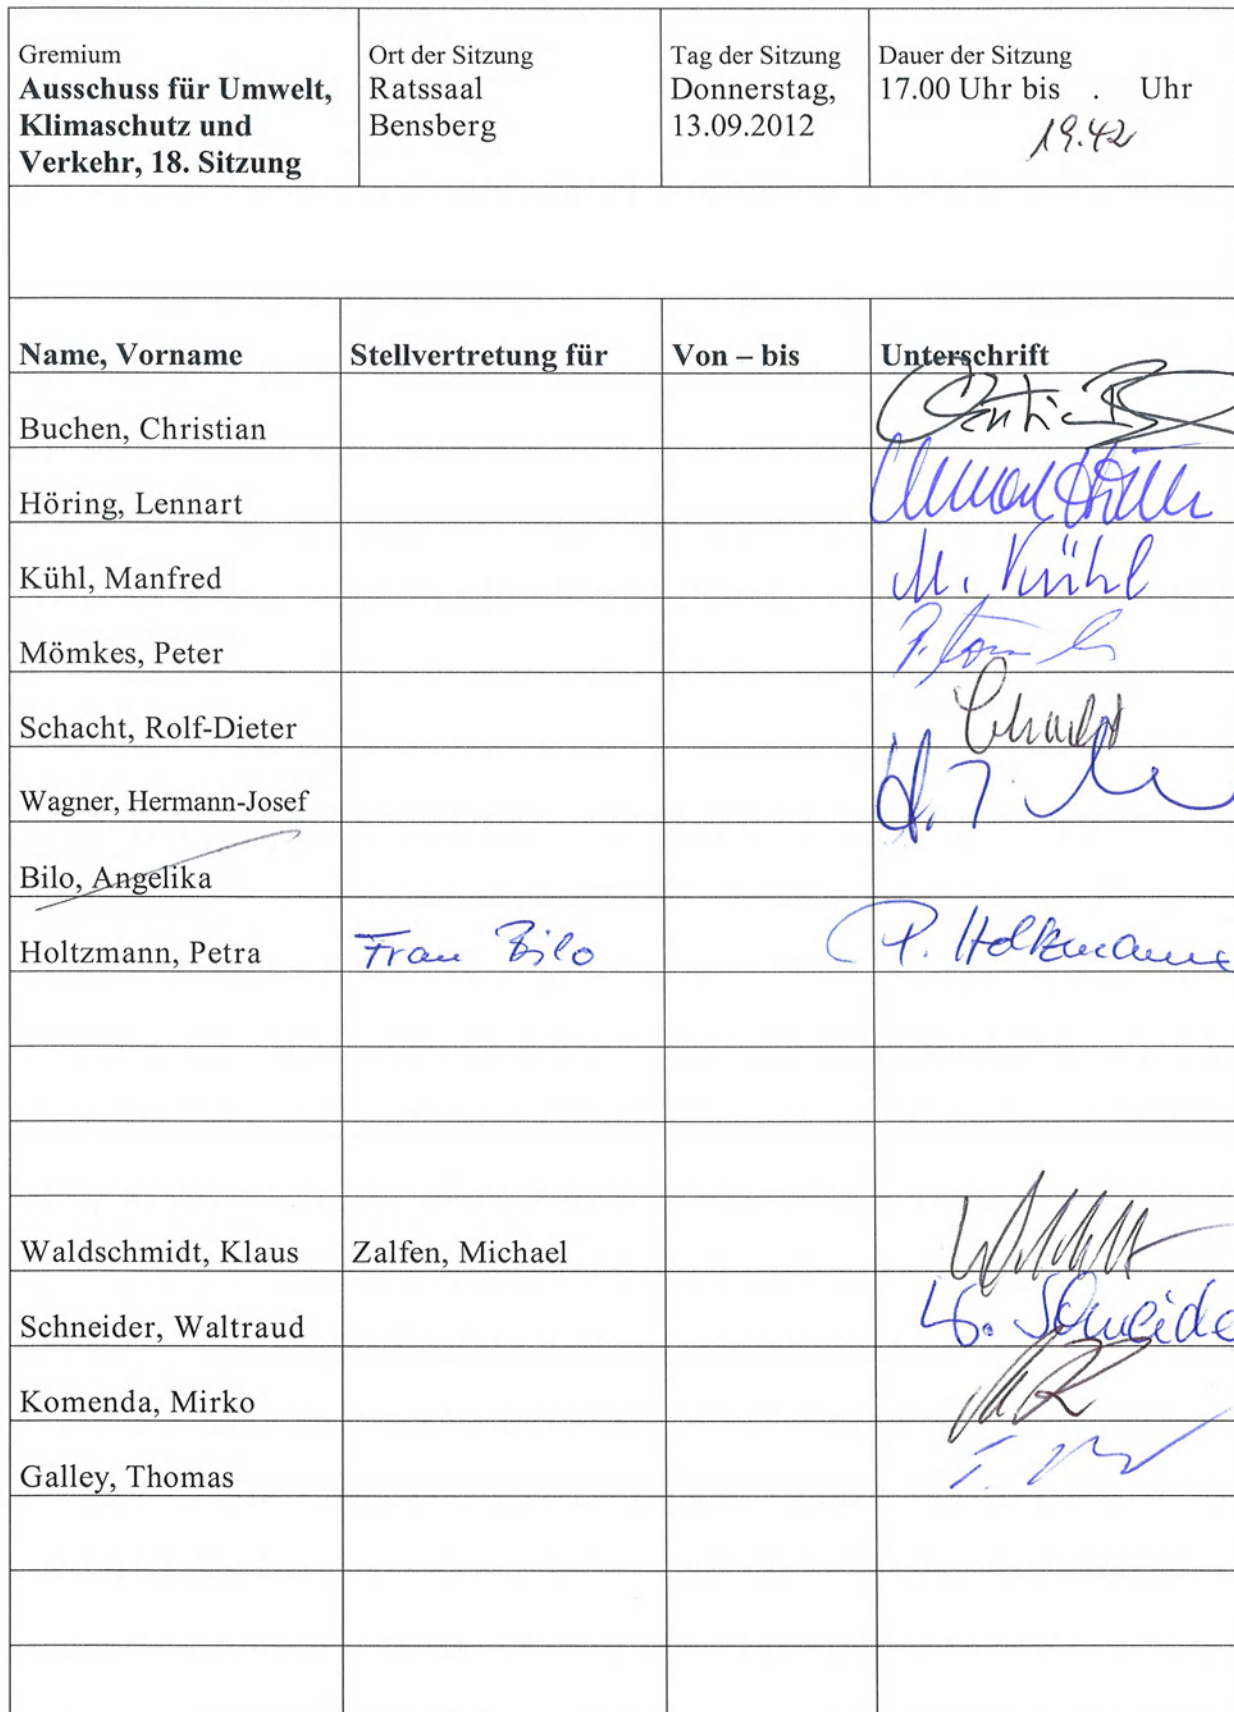 Gremium
Ausschuss für Umwelt,
Klimaschutz und
Verkehr, 18. Sitzung
Ort der Sitzung
Ratssaal
Bensberg
Tag der Sitzung
Donnerstag,
13.09.2012
Dauer der Sitzung
17.00 Uhr bis . Uhr
19.42
Name, Vorname Stellvertretung für Von – bis Unterschrift
Buchen, Christian
Höring, Lennart
Kühl, Manfred M. Kühl
Mömkes, Peter
Schacht, Rolf-Dieter
Wagner, Hermann-Josef
Bilo, Angelika
Holtzmann, Petra Frau Bilo P. Holtzmann
Waldschmidt, Klaus Zalfen, Michael
Schneider, Waltraud
Komenda, Mirko
Galley, Thomas